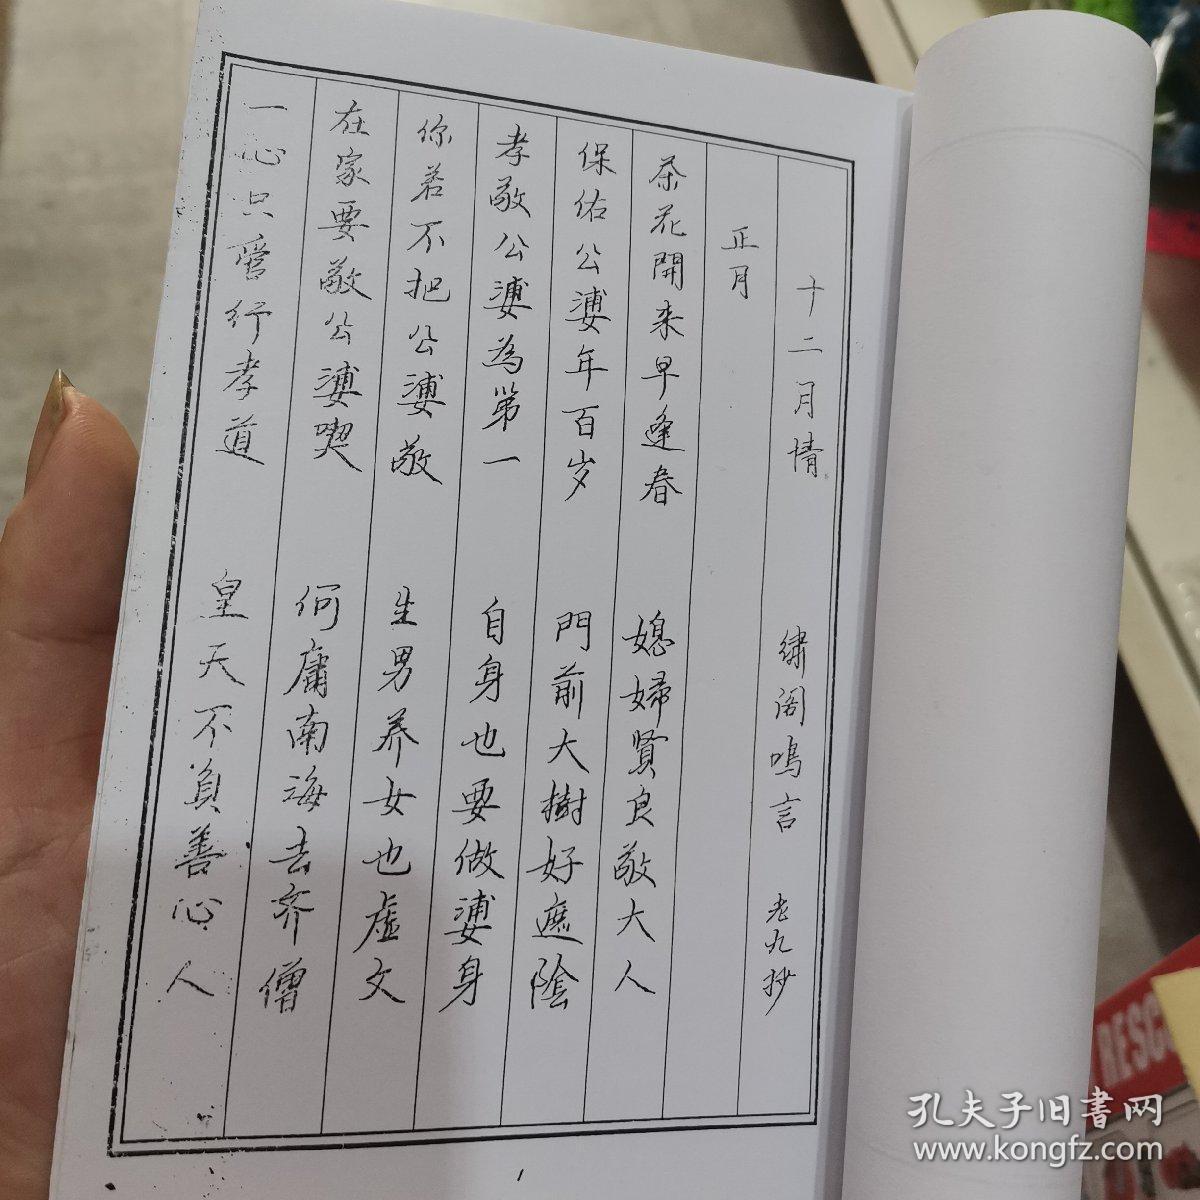 十二月情 绣阁鸣言 老九抄
正月
茶花開来早逢春 媳婦賢良敬大人
保佑公婆年百岁 門前大樹好遮陰
孝敬公婆為第一 自身也要做婆身
你若不把公婆敬 生男养女也虚文
在家要敬公婆喫 何庸南海去斋僧
一心只管行孝道 皇天不負善心人
1
孔夫子旧书网
www.kongfz.com
RESC